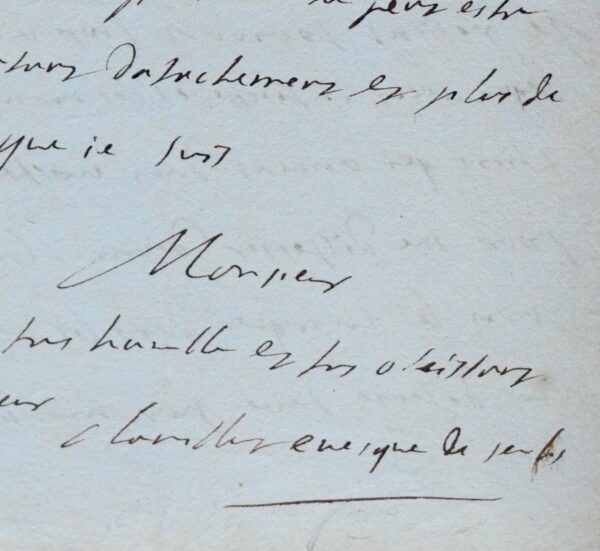 peut estre
datachement et plus de
que ie suis
Monsieur
tres humble et tres obeissant
eur
chamillart euesque de senlis